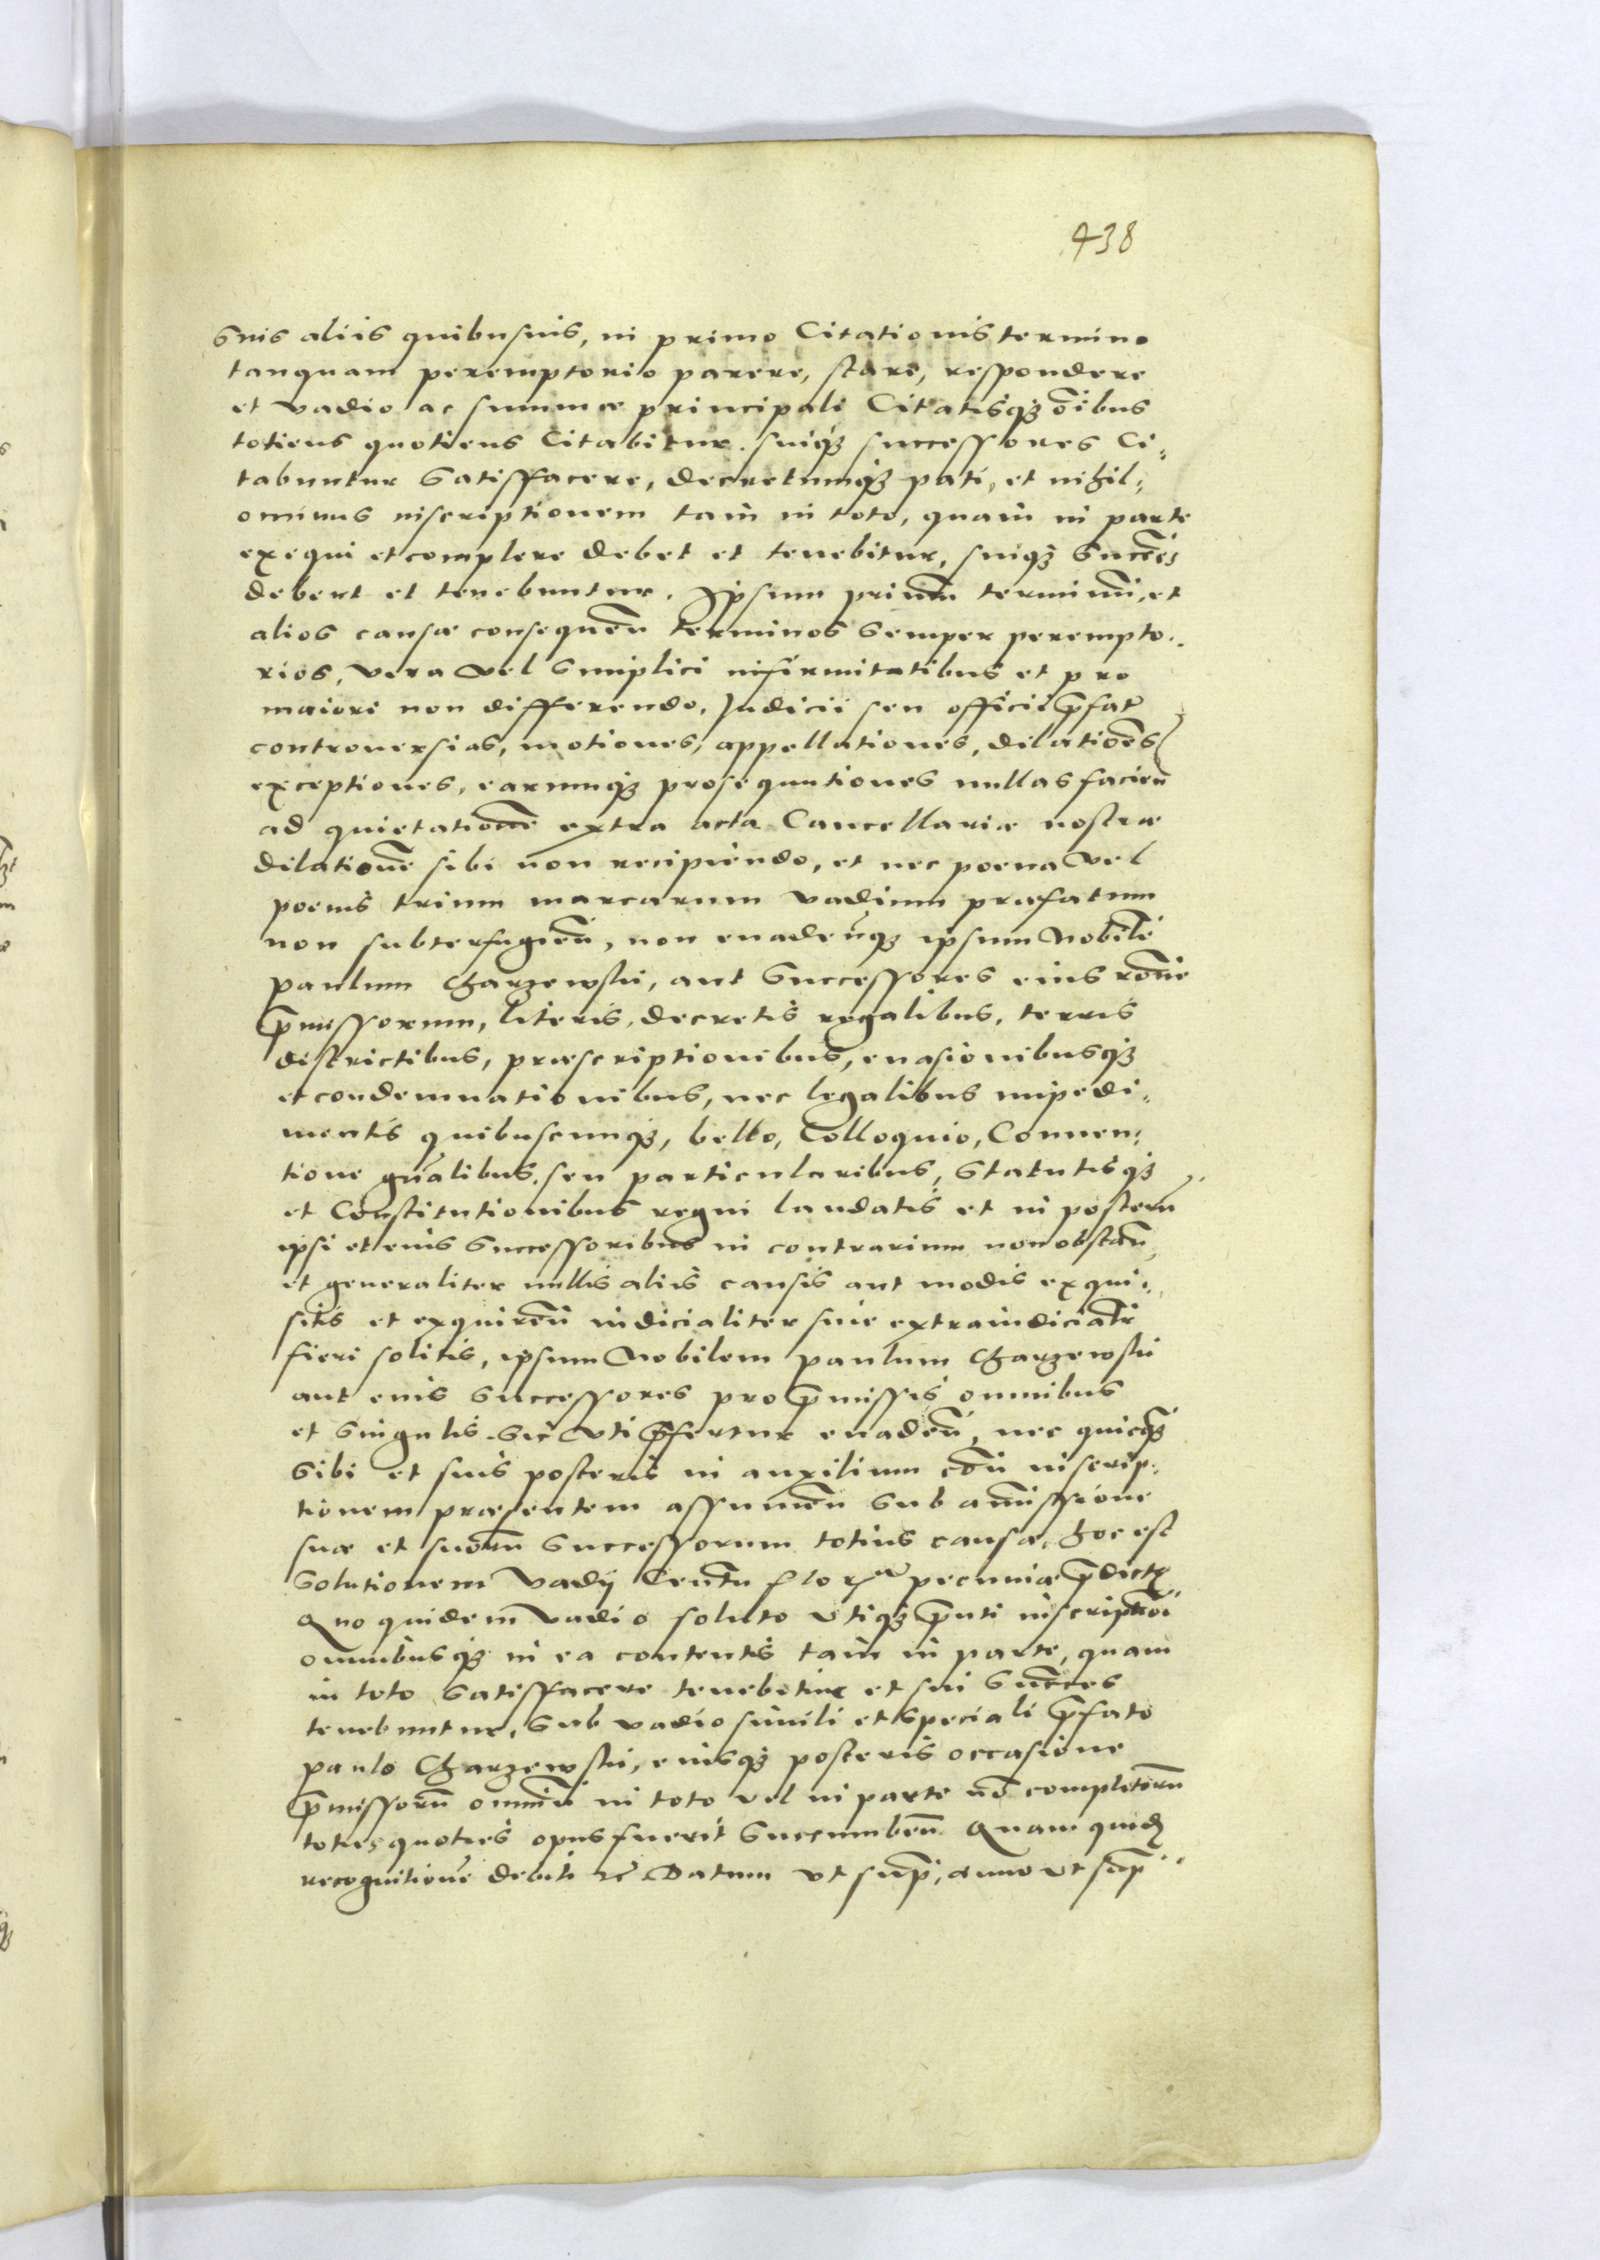 438
suis aliis quibusuis, in primo Citationis termino
tanquam peremptorio parere, stare, respondere
et vadio ac summæ principali Citatisqꝫ õibus
totiens quotiens Citabitur. suiqꝫ successores Ci„
tabuntur satisffacere, decretumqꝫ pati, et nihil„
ominus inscriptionem tam in toto, quam in parte
exequi et complere debet et tenebitur, suiqꝫ succẽs
debent et tenebuntur. Ipsum primũ terminũ, et
alios causæ consequeñ terminos semper perempto„
rios, vera vel simplici infirmitatibus et pro
maiori non differendo. Judicii seu officii p̃fat
controuersias, motiones, appellationes, dilatiões
exceptiones, earumqꝫ prosequutiones nullas facieñ
ad quietationẽ extra acta Cancellariæ nostræ
dilationẽ sibi non recipiendo, et nec poena vel
poenis trium marcarum vadium præfatum
non subterfugieñ, non euadeñqꝫ ipsum Nobilẽ
Paulum Gharzewski, aut successores eius rõne
p̃missorum, literis, decretis regalibus, terris
districtibus, præscriptionibus, euasionibusqꝫ
et condemnationibus, nec legalibus impedi„
mentis quibuscunqꝫ, bello, Colloquio, Conuen„
tione gñalibus, seu particularibus, statutisqꝫ
et Constitutionibus regni laudatis et in posterũ
ipsi et eius successoribus in contrarium non obstañ
et generaliter nullis aliis causis aut modis exqui„
sitis et exquireñ iudicialiter siue extraiudicialr̃
fieri solitis, ipsum Nobilem Paulum Gharzewski
aut eius successores pro p̃missis omnibus
et singulis sic vti p̃fertur euadeñ, nec quicqꝫ
sibi et suis posteris in auxilium cõñ inscrip„
tionem præsentem assumeñ sub amissione
suæ et suorũ successorum totius causæ, hoc est
solutionem Vadij Centũ flor. pecuniæ p̃dictæ
Quo quidem vadio soluto vtiqꝫ p̃nti inscriptiõi
omnibusqꝫ in ea contentis tam in parte, quam
in toto satisffacere tenebitur et sui succẽs
tenebuntur, sub vadio simili et speciali p̃fato
Paulo Gharzewski, eiusqꝫ posteris occasione
p̃missorũ omniũ in toto vel in parte nõ completorũ
toties quoties opus fuerit succumbeñ. Quam quid
recognitionẽ debiti etc Datum vt sup̃, anno vt sup̃